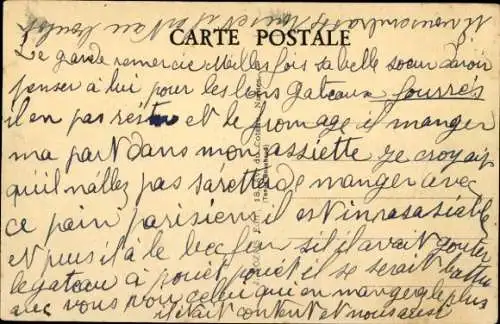 CARTE POSTALE
Le garde remercie Milles fois sa belle soeur davoir
penser à lui pour les bons gateaux fourrés
il en pas resté et le fromage il manger
ma part dans mon assiette je croyais
qu'il n'allez pas s'arêtter de manger avec
ce pain parisiens il est inrasasiable
et puis il à le bec fin s'il avait goûter
le gateau à pouët pouët il se serait battu
avec vous pour celui qui en mange le plus
il était content et nous aussi